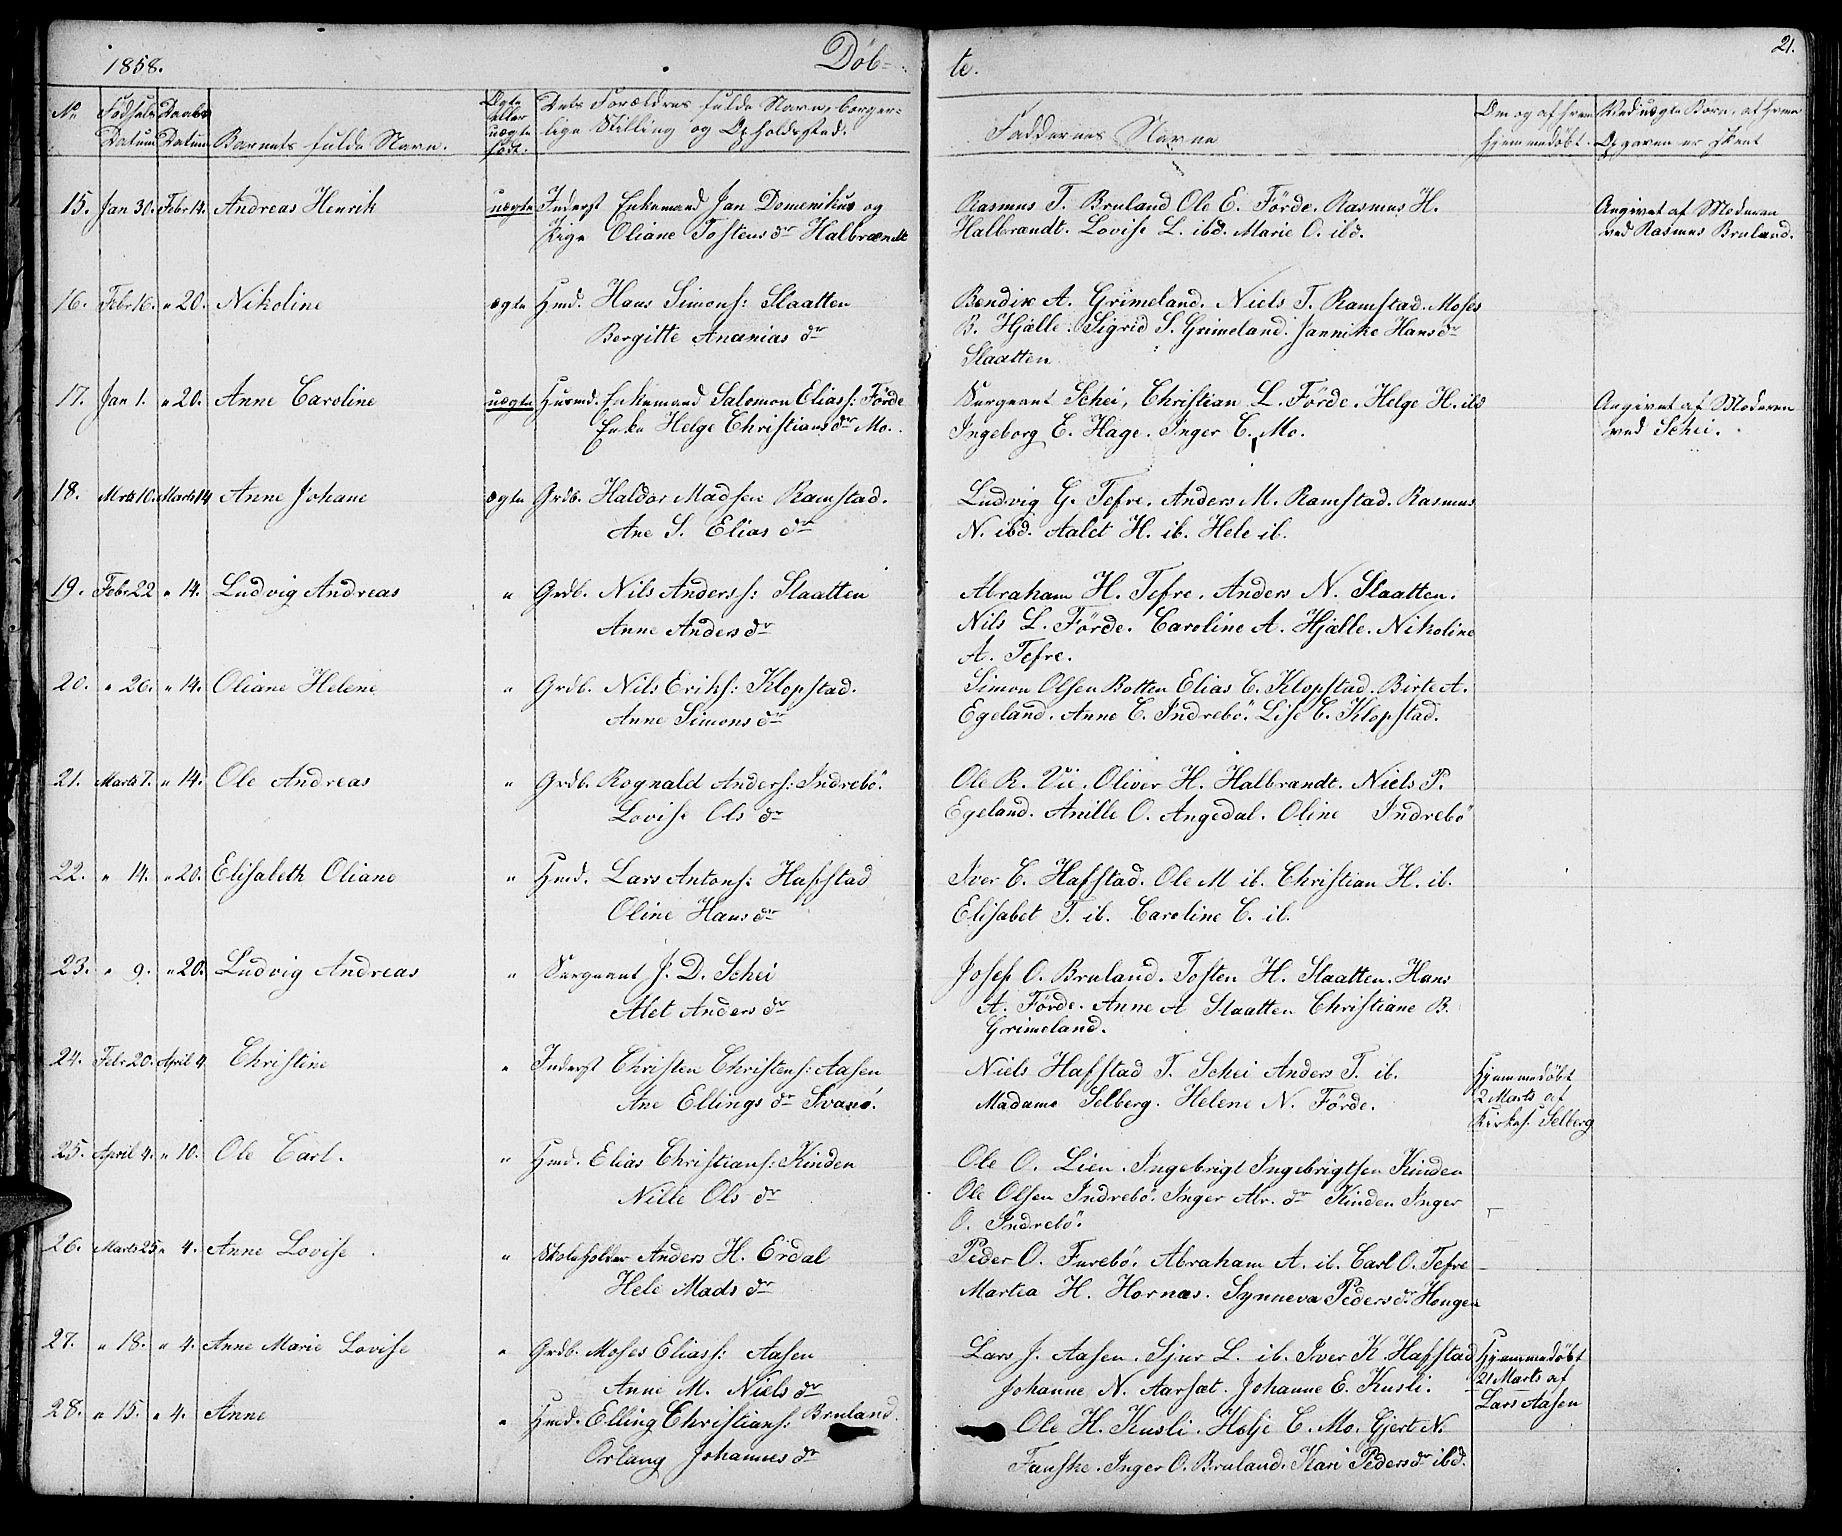 1858.
Döb-
te.
21.
No
Fødsels Datum
Daabs Datum
Barnets fulde Navn.
Ægte eller uægte født.
Dets Forældres fulde Navn, borger-
lige Stilling og Opholdssted.
Faddernes Navne
Om og af hvem
hjemmedøbt.
Ved uægte Børn, af hvem
Opgaven er skeet
15. Jan 30. Febr 14. Andreas Henrik uægte Inderst Enkemand Jan Domenikus og
Pige Oliane Tostensdr Halbrændt
Rasmus T. Bruland Ole E. Förde. Rasmus H.
Halbrandt. Lovise L. ibd. Marie O. ibd.
Angivet af Moderen
ved Rasmus Bruland.
16. Febr 16. " 20. Nikoline ægte Hmd. Hans Simons: Slaatten
Bergitte Ananias dr
Bendix A. Grimeland. Niels T. Ramstad. Moses
B. Hjälle. Sigrid S. Grimeland. Jannike Hansdr
Slaatten
17. Jan 1. " 20. Anne Caroline uægte Husmd. Enkemand Salomon Elias: Förde
Enke Helge Christiansdr Mo.
Sergeant Schei, Christian L. Förde. Helge H. ibd
Ingeborg E. Hage. Inger C. Mo.
Angivet af Moderen
ved Schei.
18. Mrts 10. Marts 14 Anne Johane ægte Grdb. Haldor Madsen Ramstad.
Ane S. Elias dr
Ludvig G. Tefre. Anders M. Ramstad. Rasmus
N. ibd. Aalet H. ib. Hele ib.
19. Febr 22 " 14. Ludvig Andreas " Grdb. Nils Anders: Slaatten
Anne Anders dr
Abraham H. Tefre. Anders N. Slaatten.
Nils L. Förde. Caroline A. Hjälle. Nikoline
A. Tefre.
20. " 26. " 14. Oliane Helene " Grdb. Nils Eriks: Klopstad.
Anne Simons dr
Simon Olsen Botten Elias C. Klopstad. Birte A.
Egeland. Anne C. Indrebö. Lise C. Klopstad.
21. Marts 7. " 14. Ole Andreas " Grdb. Rognald Anders: Indrebö.
Lovise Ols dr
Ole R. Vie. Oliver H. Halbrandt. Niels P.
Egeland. Anille O. Angedal. Oline Indrebö
22. " 14. " 20. Elisabeth Oliane " Hmd. Lars Antons: Hafstad
Oline Hans dr
Iver C. Hafstad. Ole M ib. Christian H. ib.
Elisabet T. ib. Caroline C. ib.
23. " 9. " 20. Ludvig Andreas " Sergeant J. D. Schei
Alet Anders dr
Josef O. Bruland. Tosten H. Slaatten. Hans
A. Förde. Anne A Slaatten Christiane B.
Grimeland.
24. Febr 20. April 4 Christine " Inderst Christen Christens: Aasen
Ane Ellings dr Svanö.
Niels Hafstad T. Schei Anders T. ib.
Madame Selberg. Helene N. Förde.
Hjemmedöbt
2 Marts af
Kirkes. Selberg
25. April 4. " 10. Ole Carl. " Hmd. Elias Christians: Kinden
Nille Ols dr
Ole O. Lien. Ingebrigt Ingebrigtsen Kinden
Ole Olsen Indrebö. Inger Abr. dr Kinden Inger
O. Indrebö.
26. Marts 25 " 4. Anne Lovise " Skoleholder Anders H. Erdal
Hele Mads dr
Peder O. Furebö. Abraham A. ib. Carl O. Tefre
Martea H. Hornæs. Synneva Pedersdr Hougen
27. " 18. " 4. Anne Marie Lovise " Grdb. Moses Elias: Aasen
Anne M. Niels dr
Lars J. Aasen. Sjur L. ib. Iver K. Hafstad
Johanne N. Aarsæt. Johanne E. Kusli.
Hjemmedöbt
21 Marts af
Lars Aasen
28. " 15. " 4. Anne " Hmd. Elling Christians: Bruland.
Orlaug Johannes dr
Ole H. Kusli. Holje C. Mo. Gjert N.
Fanske. Inger O. Bruland. Kari Pedersdr ibd.